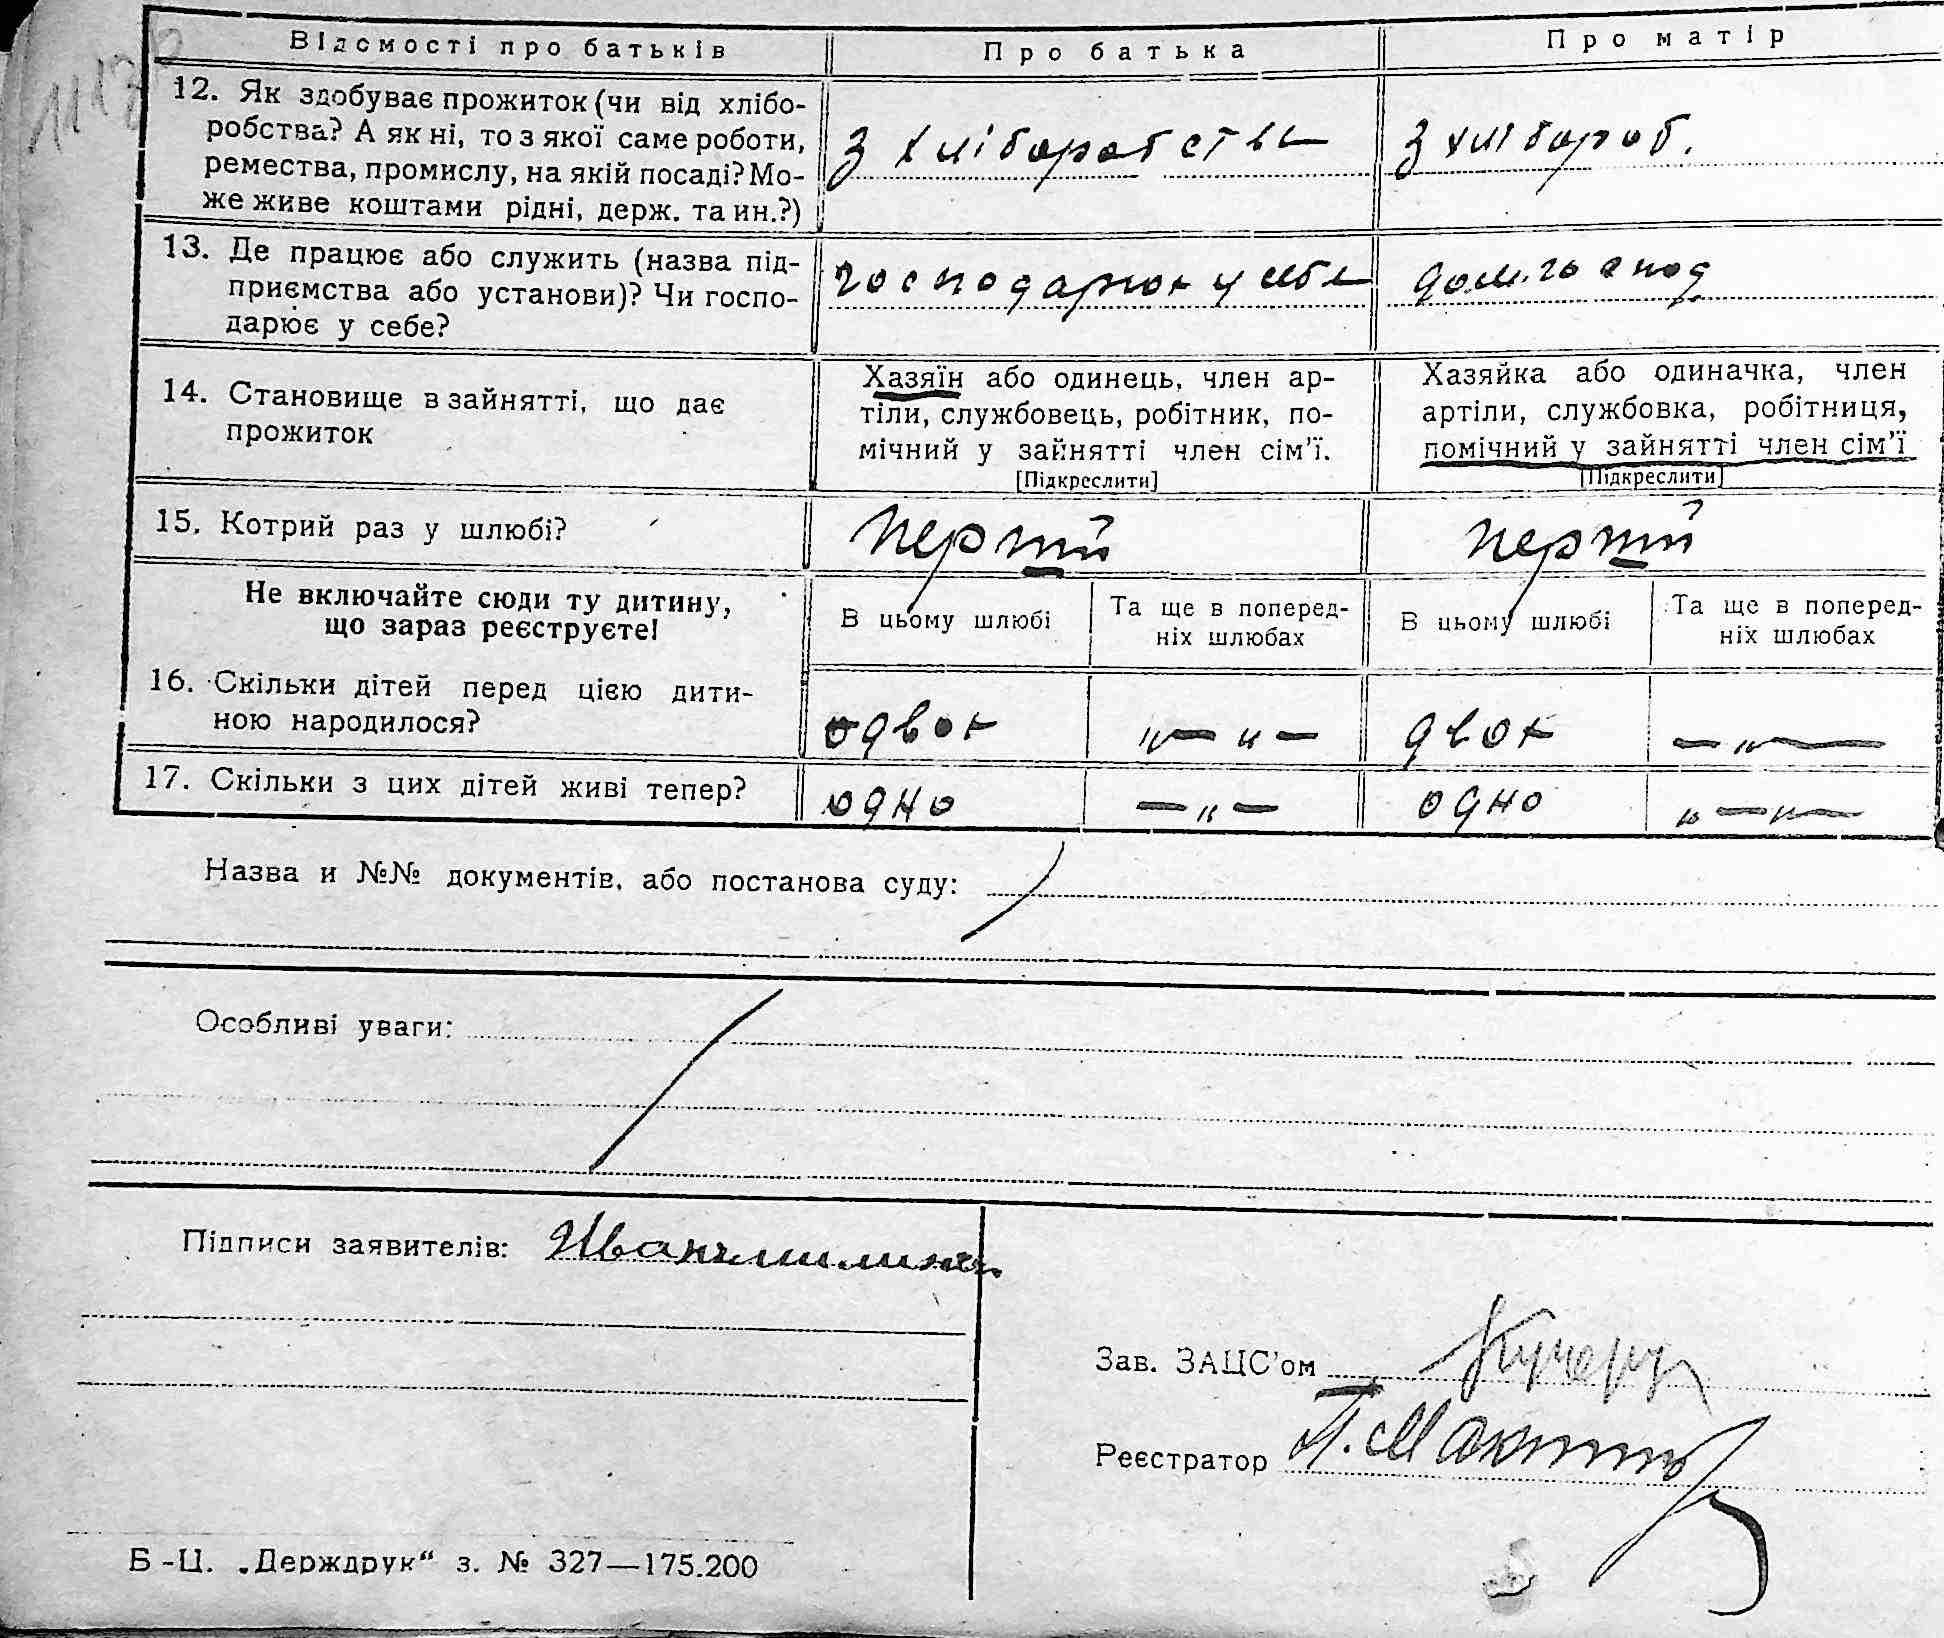 Відомості про батьків Про батька Про матір
12. Як здобуває прожиток (чи від хлібо-
робства? А як ні, то з якої саме роботи,
ремества, промислу, на якій посаді? Мо-
же живе коштами рідні, держ. та ин.?)
З хліборобства З хлібороб.
13. Де працює або служить (назва під-
приємства або установи)? Чи госпо-
дарює у себе?
господарює у себе дом. господ
14. Становище в зайнятті, що дає
прожиток
Хазяїн або одинець, член ар-
тіли, службовець, робітник, по-
мічний у зайнятті член сім'ї.
[Підкреслити]
Хазяйка або одиначка, член
артіли, службовка, робітниця,
помічний у зайнятті член сім'ї
[Підкреслити]
15. Котрий раз у шлюбі? перший перший
Не включайте сюди ту дитину,
що зараз реєструєте!
В цьому шлюбі Та ще в поперед-
ніх шлюбах
В цьому шлюбі Та ще в поперед-
ніх шлюбах
16. Скільки дітей перед цією дити-
ною народилося?
двоє — „ — двоє — „ —
17. Скільки з цих дітей живі тепер? одно — „ — одно „ — „ —
Назва и №№ документів, або постанова суду:
Особливі уваги:
Підписи заявителів:
Зав. ЗАЦС'ом Кучеру
Реєстратор П.
Б-Ц. „Держдрук“ з. № 327—175.200